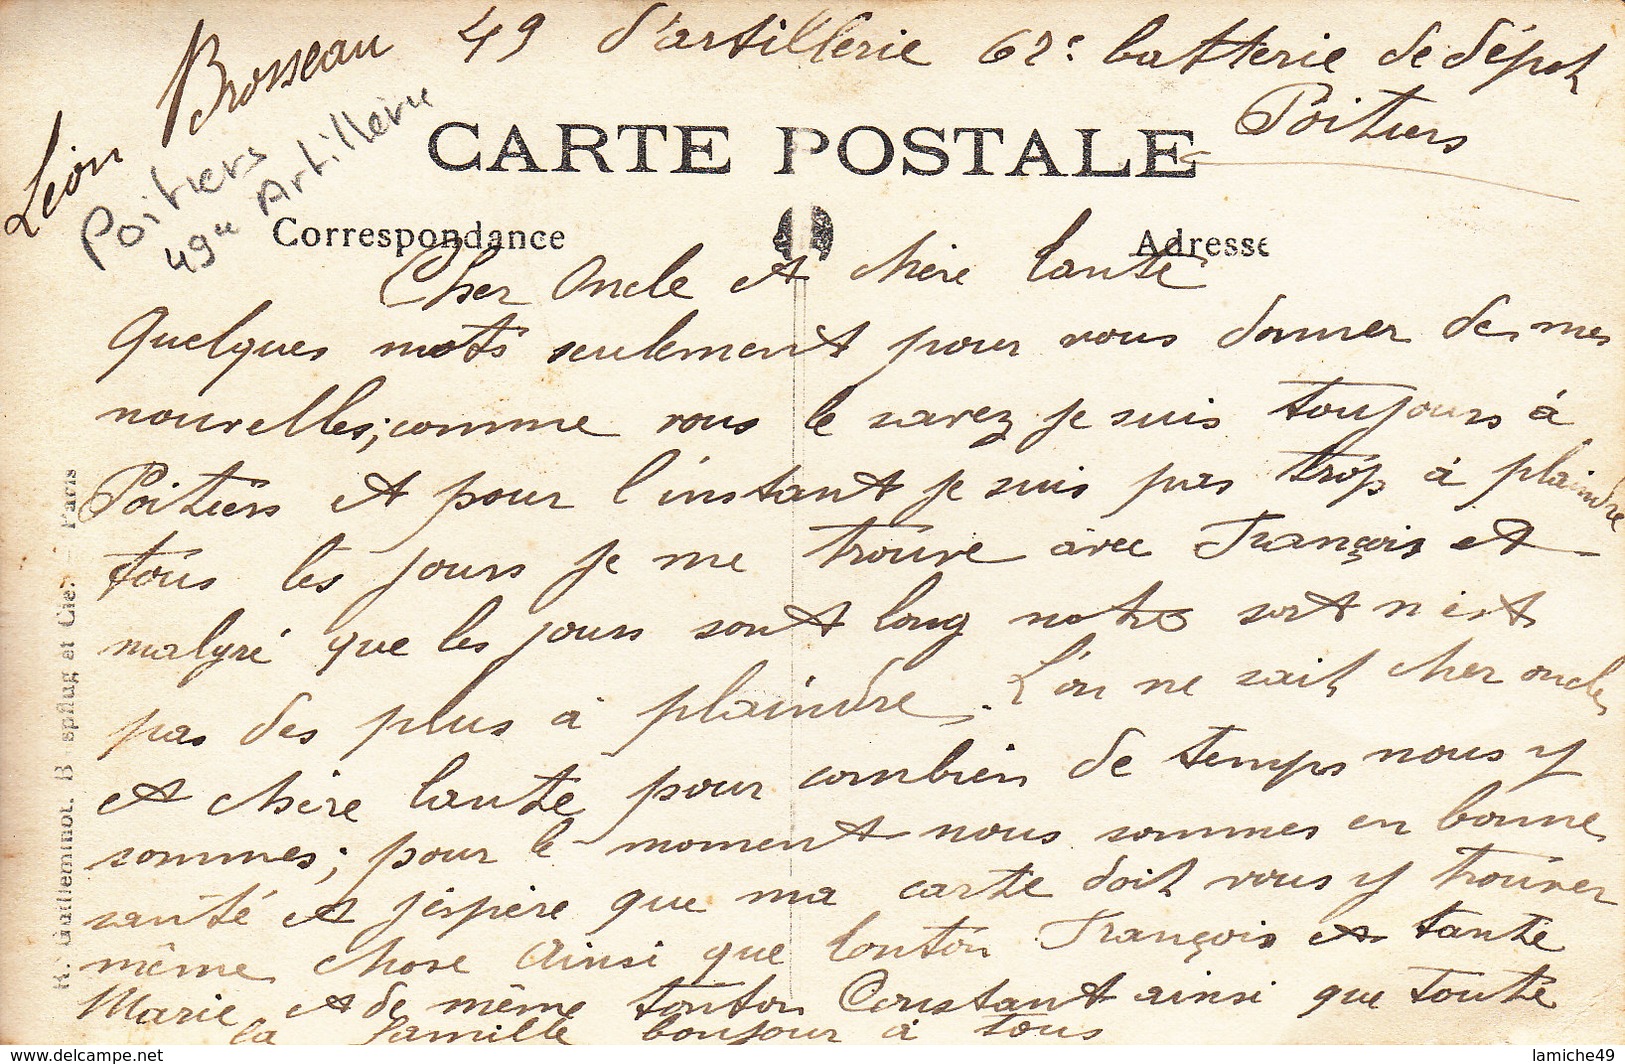 Léon Brosseau 49 d'artillerie 62e batterie de dépot
Poitiers
Poitiers
49eme Artillerie
CARTE POSTALE
Correspondance Adresse
Cher Oncle et chère tante
Quelques mots seulement pour vous donner de mes
nouvelles; comme vous le savez je suis toujours à
Poitiers et pour l'instant je suis pas trop à plaindre
tous les jours je me trouve avec François et
malgré que les jours sont long notre sort n'est
pas des plus à plaindre. L'on ne sait cher oncle
et chère tante pour combien de temps nous y
sommes; pour le moment nous sommes en bonne
santé et j'espère que ma carte doit vous y trouver
même chose ainsi que tonton François et tante
Marie et de même tonton Constant ainsi que toute
la famille bonjour à tous
R. Guilleminot, B spflug et Cie. - Paris
lamiche49